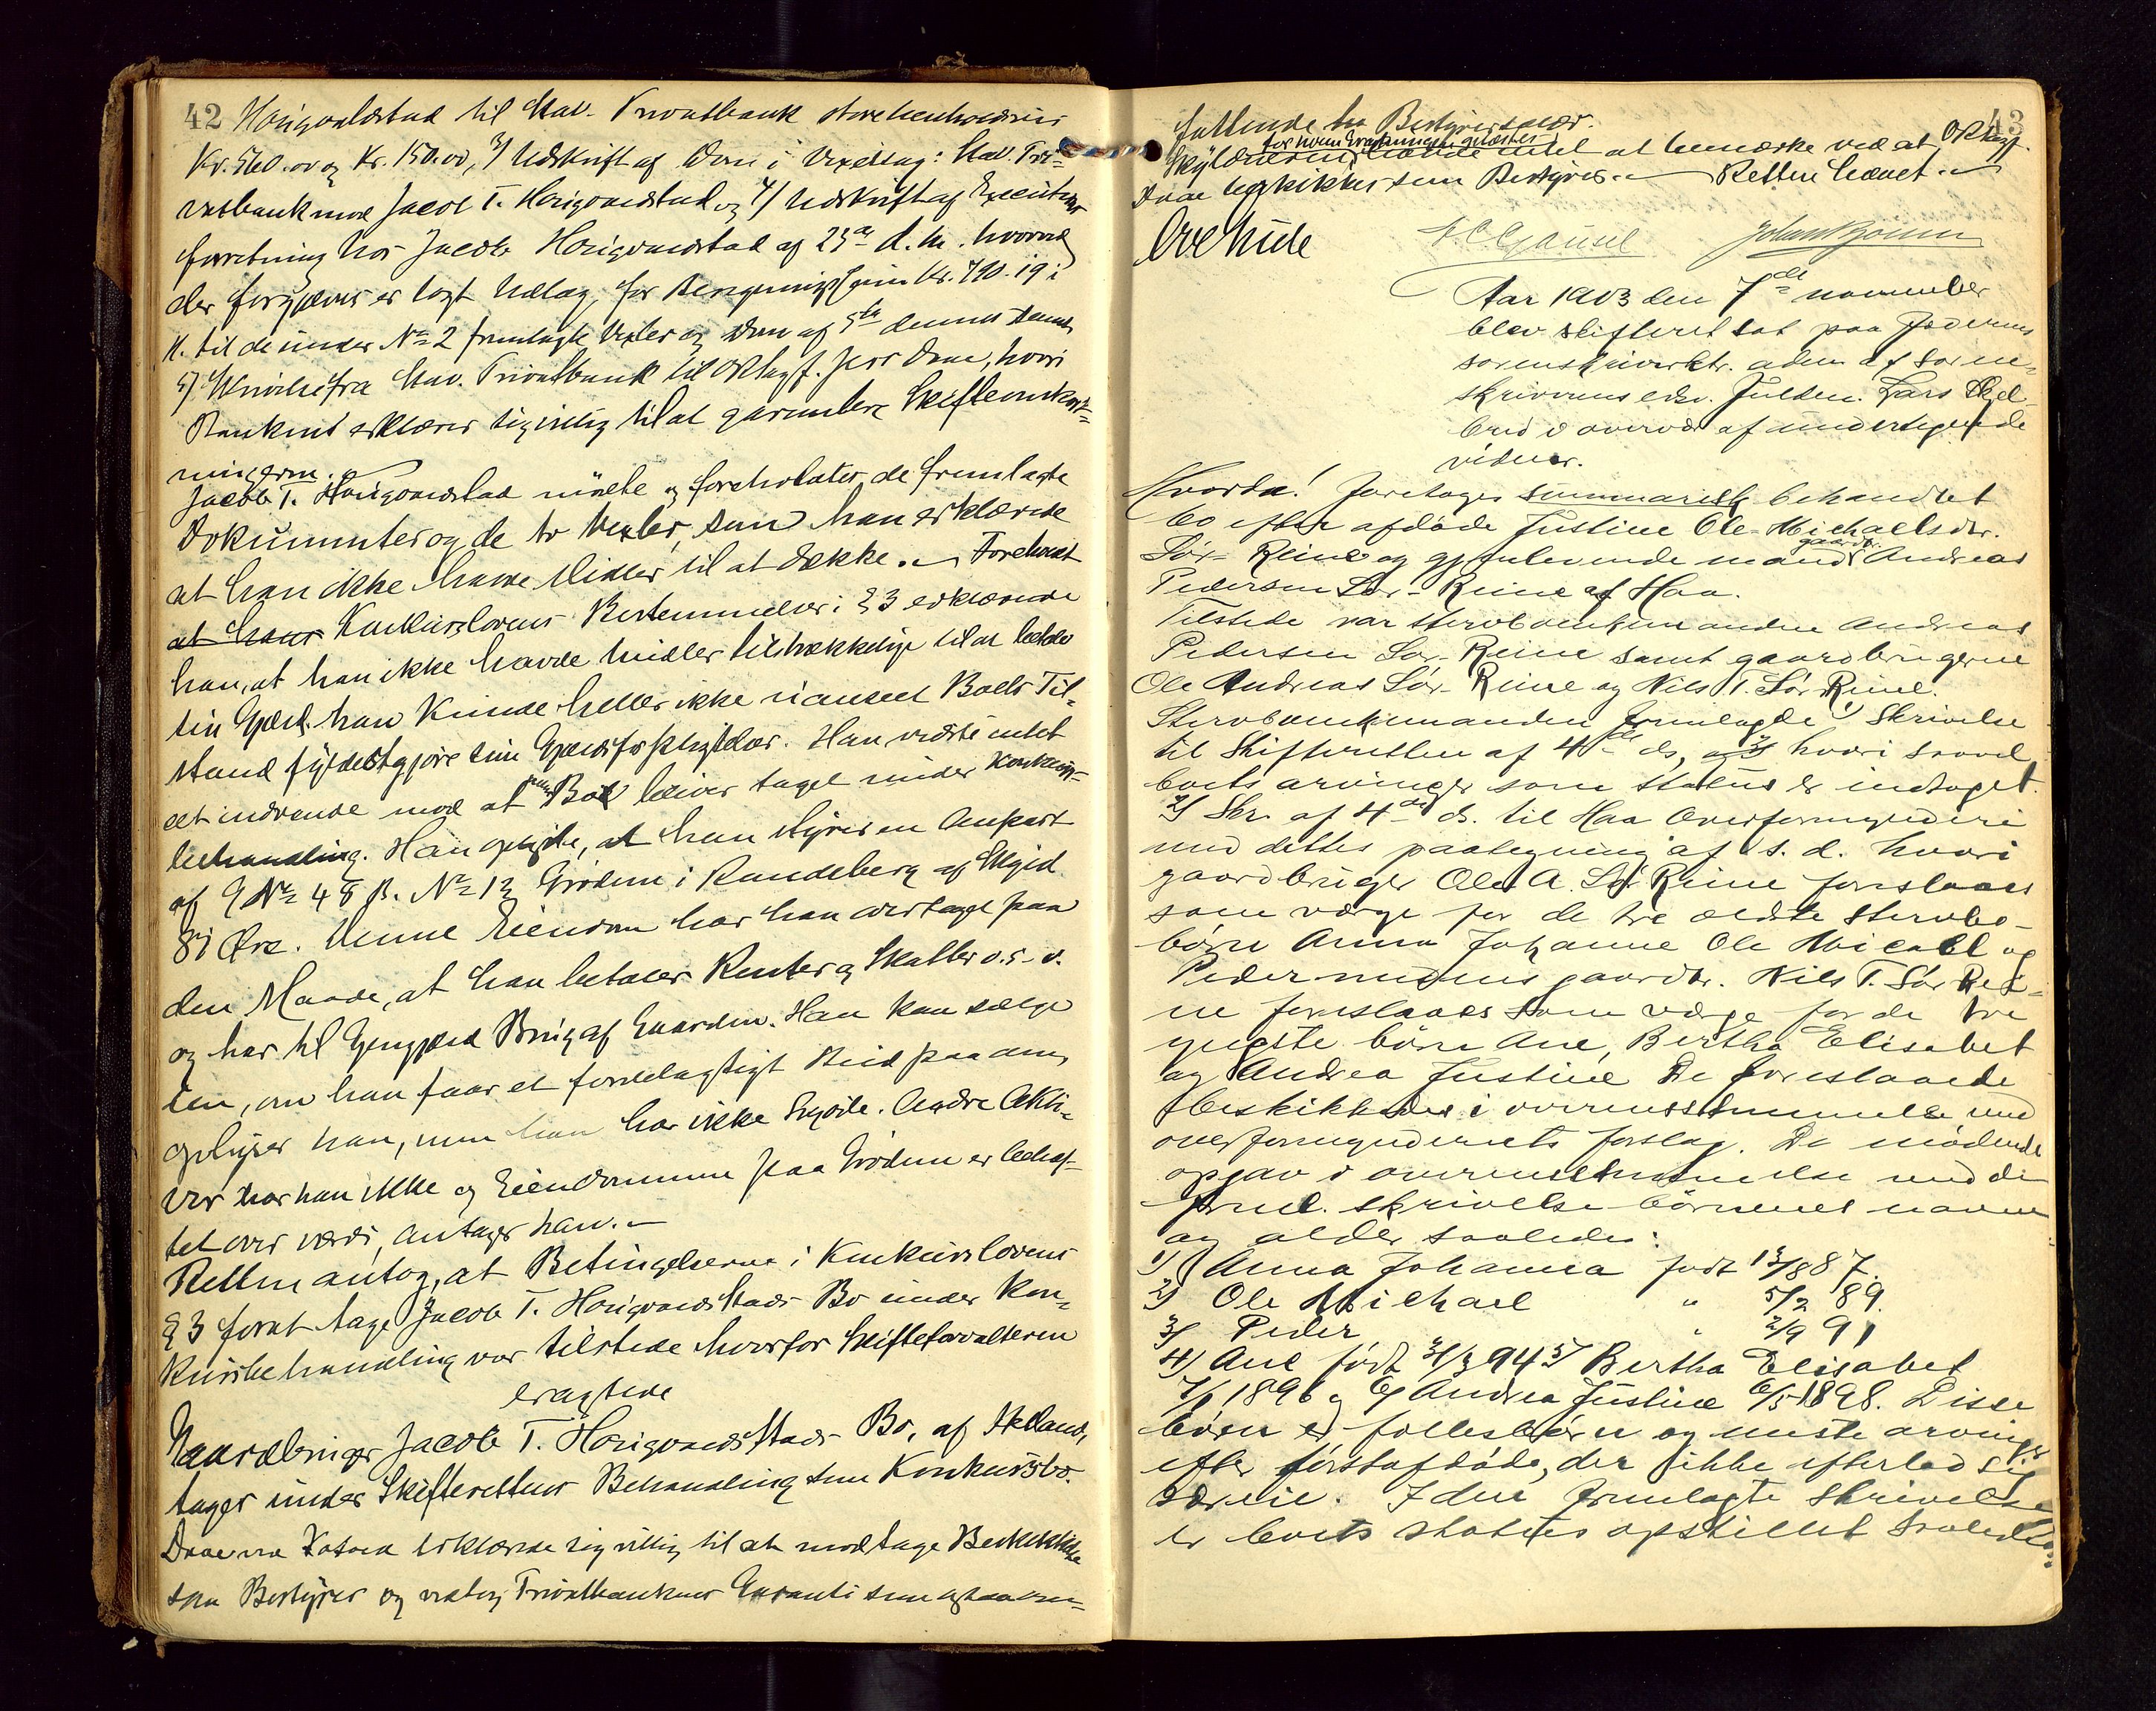 42 Horigvarlstad til Stav. Privatbank store henholdsvis
Kr. 560.00 og Kr. 150.00, 3/ Udskrift af Dom i Vexelsag: Stav. Pri-
vatbank mod Jacob T. Horigvarlstad og 4/ Udskrift af Executions
forretning hos Jacob Horigvarlstad af 25de d. m. hvorved
der forgjæves er søgt Udlæg for Kr. 790.19 i
H. til de under No 2 fremlagte Vexler og Dom af 5te dennes Maaned,
5) Skrivelse fra Stav. Privatbank til O.R.sagf. Jess Daae, hvori
Banken erklærer sig villig til at garantere Skifteomkost-
ningerne.
Jacob T. Horigvarlstad mødte og foreholdtes de fremlagte
Dokumenter og de to Vexler, som han erklærede
at han ikke havde Midler til at dække. Foreholdt
at hans Konkurslovens Bestemmelser i § 3 erklærede
han, at han ikke havde Midler tilstrækkelige til at betale
sin Gjæld. han kunde heller ikke uanseet Boets Til-
stand fyldestgjøre sine Gjældsforpligtelser. Han vidste intet
at indvende mod at hans Bo bliver taget under Konkurs-
behandling. Han oplyste, at han styrer en Anpart
af G No 48 B. No 12 Grødem i Randeberg af Skyld
81 Øre. Denne Eiendom har han overtaget paa
den Maade, at han betaler Renter og Skatter o.s.v.
og har til Gjengjæld Brug af Gaarden. Han kan sælge
den, om han faar et fordelagtigt Bud paa den,
oplyser han, men han har ikke Skjøde. Andre Akti-
ver har han ikke og Eiendommen paa Grødem er behæf-
tet over værdi, antager han.
Retten antog, at Betingelserne i Konkurslovens
§ 3 forat tage Jacob T. Horigvarlstads Bo under Kon-
kursbehandling var tilstede hvorfor Skifteforvalteren
eragtede
Gaardbruger Jacob T. Horigvarlstads Bo, af Hetland,
tages under Skifterettens Behandling som Konkursbo.
Daae var erklærede sig villig til at modtage Beskikkelse
som Bestyrer og vedtog Privatbankens Garanti som ogsaa om-
43
fattende for Bestyrersalær.
for hvem Eragtningen oplæstes
Skyldneren havde intet at bemærke ved at O.R.sagf.
Daae beskikkes som Bestyrer. Retten hævet.
Ove Hude
Gausel
Aar 1903 den 7de november
blev skifteret sat paa Jæderens
sorenskriverktr. adm. af soren-
skriverens edsv. Fuldm. Lars Skel-
bred i overvær af undertegnede
vidner.
Hvorda! Foretages summarisk behandlet
bo efter afdøde Justine Ole-Michaelsdr.
Sør-Reime og gjenlevende mand gaardbr. Andreas
Pedersen Sør-Reime af Haa.
Tilstede var stervboenkemanden Andreas
Pedersen Sør-Reime samt gaardbrugerne
Ole Andreas Sør-Reime og Nils T. Sør Reime.
Stervboenkemanden fremlagde 1/ Skrivelse
til Skifteretten af 4de ds, hvori saavel
boets arvinger som status er indtaget.
2/ Skr. af 4de ds. til Haa Overformynderi
med dettes paategning af s. d. hvori
gaardbruger Ole A. Sør Reime foreslaaes
som værge for de tre ældste stervbo-
børn Anna Johanne Ole Micael og
Peder medens gaardbr. Nils T. Sør Rei-
me foreslaaes som værge for de tre
yngste børn Ane, Bertha Elisabet
og Andrea Justine De foreslaaede
beskikkedes i overensstemmelse med
overformynderiets forslag. De mødende
opgav i overensstemmelse med den
freml. skrivelse børnenes navne
og alder saaledes:
1) Anna Johanna født 13/8 87.
2) Ole Michael " 5/2 89.
3) Peder " 2/9 91
4) Ane født 31/3 94 5) Bertha Elisabet
7/6 1896 og 6) Andrea Justine 6/5 1898. Disse
børn er fællesbørn og eneste arvinger
efter førstafdøde, der ikke efterlod sig
særeie. I den fremlagte Skrivelse
er boets status opstillet saaledes: